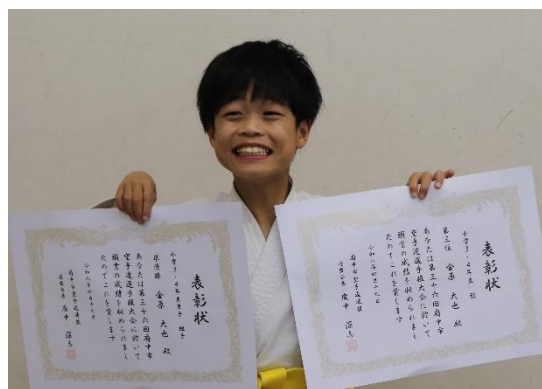 表彰状
小学3・4年生男子 組手
準優勝 金原 大也 殿
あなたは第三十六回府中市
空手道選手権大会に於いて
頭書の成績を収められまし
たのでここに賞します
府中市空手道連盟
表彰状
小学3・4年生 形
第三位 金原 大也 殿
あなたは第三十六回府中市
空手道選手権大会に於いて
頭書の成績を収められまし
たのでここに賞します
府中市空手道連盟